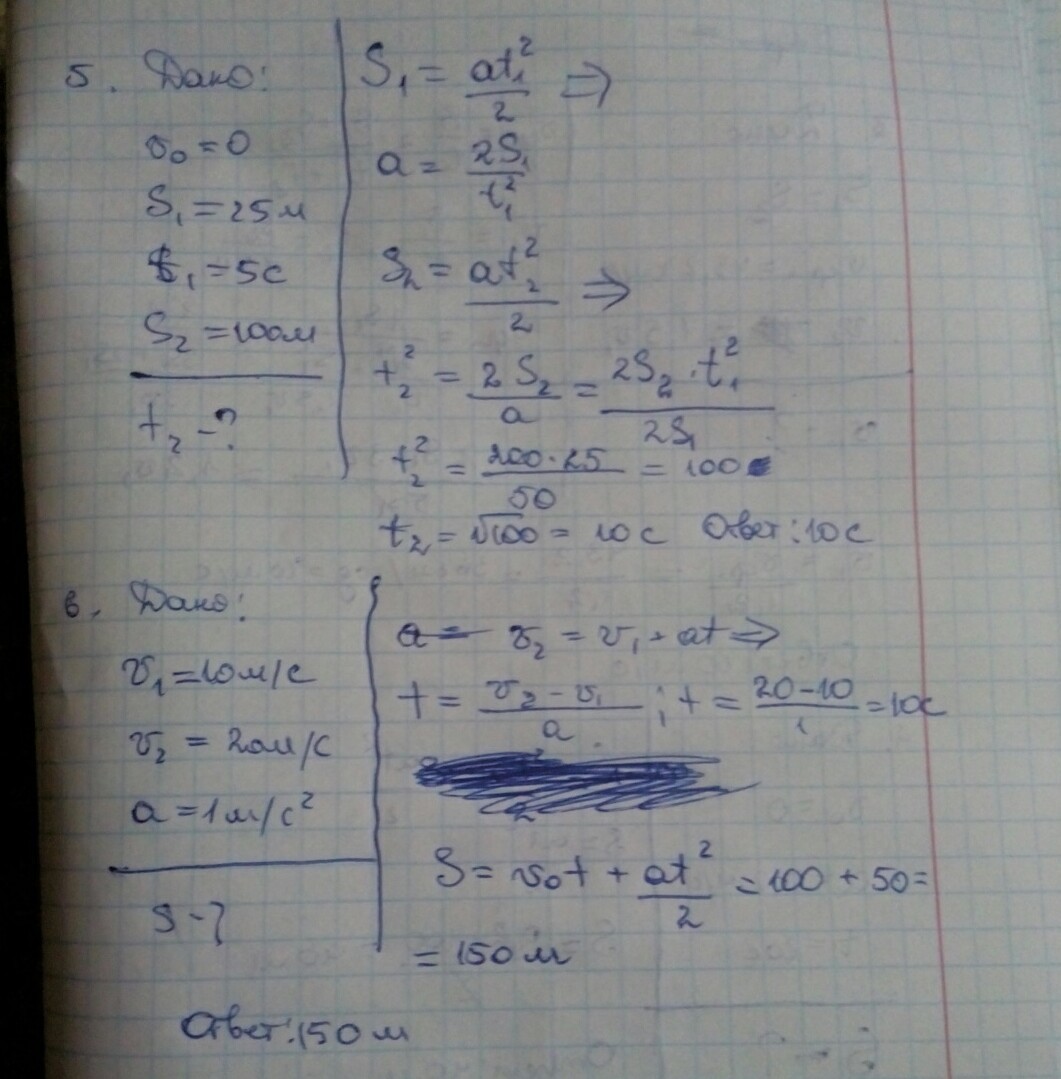 5. Дано:
υ₀ = 0
S₁ = 25м
t₁ = 5с
S₂ = 100м
t₂ - ?
S₁ = at₁²/2 ⇒
a = 2S₁/t₁²
S₂ = at₂²/2 ⇒
t₂² = 2S₂/a = 2S₂·t₁²/2S₁
t₂² = 200·25/50 = 100
t₂ = √100 = 10с Ответ: 10с
6. Дано:
υ₁ = 10м/с
υ₂ = 20м/с
a = 1м/с²
S - ?
a = υ₂ = υ₁ + at ⇒
t = υ₂ - υ₁/a ; t = 20-10/1 = 10с
S = υ₀t + at²/2 = 100 + 50 =
= 150 м
Ответ: 150 м